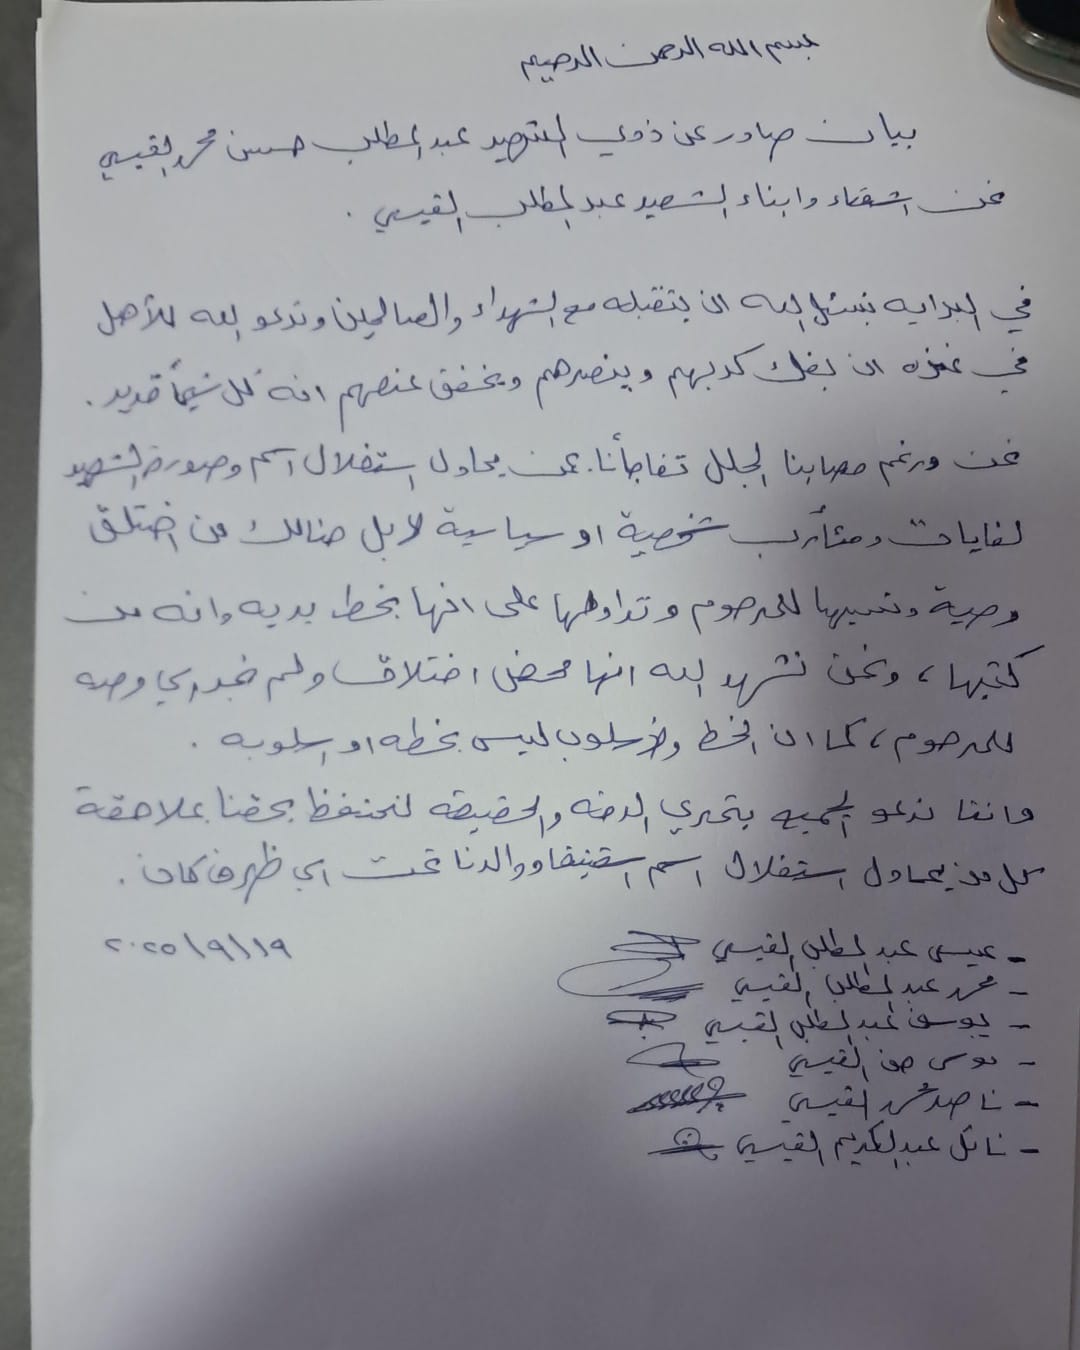 بسم الله الرحمن الرحيم
بيان صادر عن ذوي الشهيد عبد المطلب حسن محمد القيسي
نحن اشقاء وابناء الشهيد عبد المطلب القيسي .
في البدايه نسئل الله ان يتقبله مع الشهداء والصالحين وندعو الله للأهل
في غزه ان يفك كربهم وينصرهم ويخفف عنهم انه كل شيئاً قدير .
نحن ورغم مصابنا الجلل تفاجأنا بمن يحاول استغلال اسم وصورة الشهيد
لغايات ومئأرب شخصية او سياسية لا بل هنالك من اختلق
وصية ونسبها للمرحوم وتداولها على انها بخط يديه وانه من
كتبها ، ونحن نشهد الله انها محض اختلاق ولم نجد اي وصيه
للمرحوم ، كما ان الخط والأسلوب ليس بخطه او اسلوبه .
واننا ندعو الجميع بتحري الدقه والحقيقه لنحتفظ بحقنا بملاحقة
كل من يحاول استغلال اسم شقيقنا ووالدنا تحت اي ظرف كان .
٢٠٢٥/٩/١٩
- عيسى عبد المطلب القيسي
- محمد عبد المطلب القيسي
- يوسف عبد المطلب القيسي
- موسى حسن القيسي
- ناصر محمد القيسي
- نائل عبد الكريم القيسي